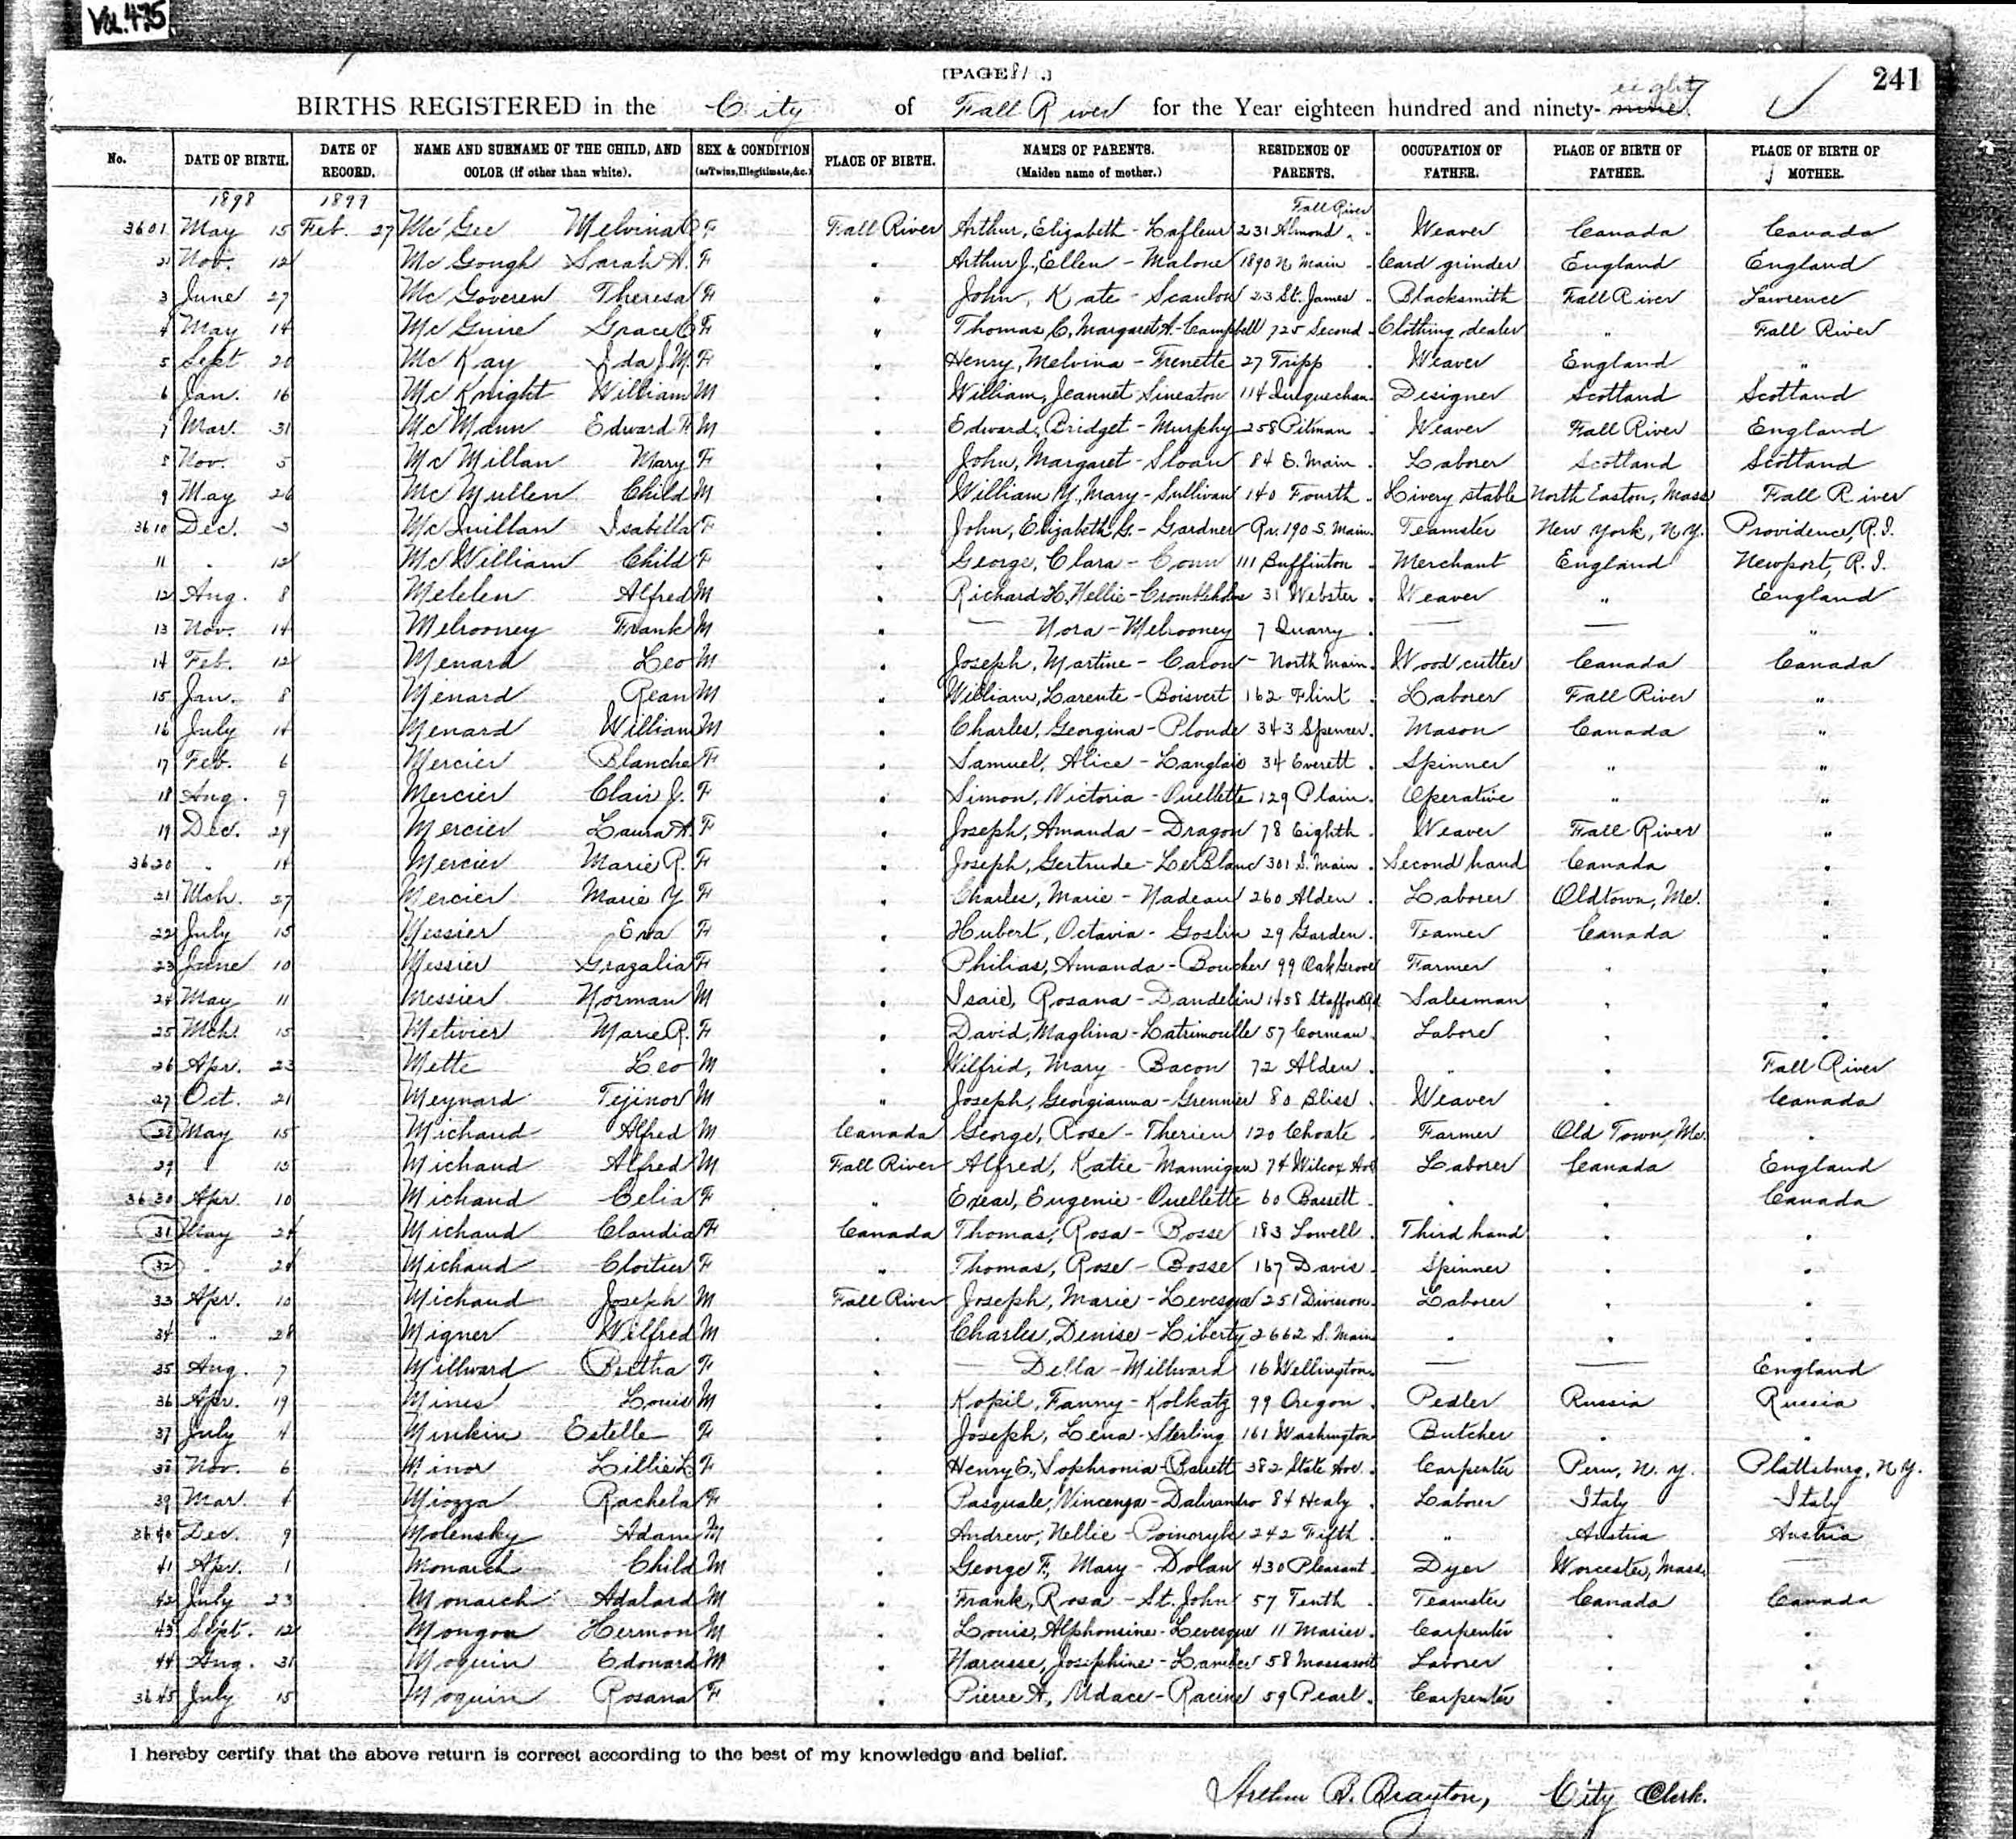 Vol. 475
[PAGE 81.]
241
BIRTHS REGISTERED in the City of Fall River for the Year eighteen hundred and ninety- nine eight
No. DATE OF BIRTH. DATE OF RECORD. NAME AND SURNAME OF THE CHILD, AND COLOR (if other than white). SEX & CONDITION (as Twins, Illegitimate, &c.) PLACE OF BIRTH. NAMES OF PARENTS. (Maiden name of mother.) RESIDENCE OF PARENTS. OCCUPATION OF FATHER. PLACE OF BIRTH OF FATHER. PLACE OF BIRTH OF MOTHER.
1898 1899 Fall River
3601 May 15 Feb. 27 Mc Gee Melvina C F Fall River Arthur, Elizabeth - Lafleur 231 Almond " Weaver Canada Canada
2 Nov. 12 Mc Gough Sarah A. F " Arthur J., Ellen - Malone 1890 N. Main " Card grinder England England
3 June 27 Mc Goveren Theresa F " John, Kate - Scanlon 23 St. James " Blacksmith Fall River Lawrence
4 May 14 Mc Guire Grace C F " Thomas C, Margaret A. - Campbell 725 Second " Clothing dealer " Fall River
5 Sept 20 Mc Kay Ida J. M. F " Henry, Melvina - Frenette 27 Tripp " Weaver England "
6 Jan. 16 Mc Knight William M " William, Jeannet Sineaton 114 Quequechan " Designer Scotland Scotland
7 Mar. 31 Mc Mann Edward F M " Edward, Bridget - Murphy 258 Pitman " Weaver Fall River England
8 Nov. 5 Mc Millan Mary F " John, Margaret - Sloan 84 E. Main " Laborer Scotland Scotland
9 May 26 Mc Mullen Child M " William Y, Mary - Sullivan 140 Fourth " Livery stable North Easton, Mass Fall River
3610 Dec. 3 Mc Quillan Isabella F " John, Elizabeth G. - Gardner Rr. 190 S. Main " Teamster New York, N.Y. Providence, R.I.
11 " 12 Mc William Child F " George, Clara - Conn 111 Buffinton " Merchant England Newport, R.I.
12 Aug. 8 Melelen Alfred M " Richard H, Nellie - Crombleholme 31 Webster " Weaver " England
13 Nov. 14 Melrooney Frank M " — Nora - Melrooney 7 Quarry " — — "
14 Feb. 12 Menard Leo M " Joseph, Martine - Caron - North Main " Wood cutter Canada Canada
15 Jan. 8 Menard Rean M " William, Larente - Boisvert 162 Flint " Laborer Fall River "
16 July 14 Menard William M " Charles, Georgina - Plonde 343 Spencer " Mason Canada "
17 Feb. 6 Mercier Blanche F " Samuel, Alice - Langlais 34 Everett " Spinner " "
18 Aug. 9 Mercier Clair J. F " Simon, Victoria - Ouellette 129 Plain " Operative " "
19 Dec. 29 Mercier Laura A. F " Joseph, Amanda - Dragon 78 Eighth " Weaver Fall River "
3620 " 14 Mercier Marie R. F " Joseph, Gertrude - LeBland 301 S. Main " Second hand Canada "
21 Mch. 27 Mercier Marie Y F " Charles, Marie - Nadeau 260 Alden " Laborer Oldtown, Me. "
22 July 15 Messier Eva F " Hubert, Octavia - Goslin 29 Garden " Teamer Canada "
23 June 10 Messier Grazalia F " Philias, Amanda - Boucher 99 Oak Grove Farmer " "
24 May 11 Messier Norman M " Isaie, Rosana - Dandelin 1458 Stafford Rd Salesman " "
25 Mch. 15 Metivier Marie R. F " David, Maglina - Latrimouille 57 Corneau " Labore " "
26 Apr. 23 Mette Leo M " Wilfrid, Mary - Bacon 72 Alden " " " Fall River
27 Oct. 21 Meynard Tejinor M " Joseph, Georgianna - Grennier 80 Bliss " Weaver " Canada
28 May 15 Michaud Alfred M Canada George, Rose - Therien 120 Choate " Farmer Old Town, Me. "
29 " 15 Michaud Alfred M Fall River Alfred, Katie - Mannigan 74 Wilcox Ave Laborer Canada England
3630 Apr. 10 Michaud Celia F " Exear, Eugenie - Ouellette 60 Bassett " " " Canada
31 May 24 Michaud Claudia F Canada Thomas, Rosa - Bosse 183 Lowell " Third hand " "
32 " 24 Michaud Cloitier F " Thomas, Rose - Bosse 167 Davis " Spinner " "
33 Apr. 10 Michaud Joseph M Fall River Joseph, Marie - Levesque 251 Division " Laborer " "
34 " 28 Migner Wilfred M " Charles, Denise - Liberty 2662 S. Main " " "
35 Aug. 7 Millward Bertha F " — Della - Millward 16 Wellington " — — England
36 Apr. 19 Mines Louis M " Kopil, Fanny - Kolkatz 99 Oregon " Pedler Russia Russia
37 July 4 Minkin Estelle F " Joseph, Lena - Sterling 161 Washington Butcher " "
38 Nov. 6 Minor Lillie L. F " Henry E., Sophronia - Barrett 382 State Ave. " Carpenter Peru, N.Y. Plattsburg, N.Y.
39 Mar. 4 Miozza Rachela F " Pasquale, Vincenza - Dalisandro 84 Healy " Laborer Italy Italy
3640 Dec. 9 Molensky Adam M " Andrew, Nellie - Poinoryk 242 Fifth " " Austria Austria
41 Apr. 1 Monarch Child M " George F., Mary - Dolan 430 Pleasant " Dyer Worcester, Mass. —
42 July 23 Monarch Adalard M " Frank, Rosa - St. John 57 Tenth " Teamster Canada Canada
43 Sept. 12 Mongon Hermon M " Louis, Alphonsine - Levesque 11 Marier " Carpenter " "
44 Aug. 31 Moquin Edouard M " Narcisse, Josephine - Lambee 58 Massasoit Laborer " "
3645 July 15 Moquin Rosana F " Pierre A, Udace - Racine 59 Pearl " Carpenter " "
I hereby certify that the above return is correct according to the best of my knowledge and belief.
Arthur B. Brayton, City Clerk.